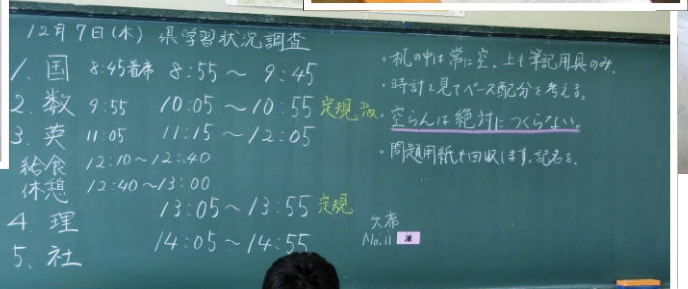 12月7日(木) 県学習状況調査
1. 国 8:45着席 8:55～9:45
2. 数 9:55 10:05～10:55 定規
3. 英 11:05 11:15～12:05
給食 12:10～12:40
休憩 12:40～13:00
4. 理 13:05～13:55 定規
5. 社 14:05～14:55
・机の中は常に空。上も筆記用具のみ。
・時計を見てペース配分を考える。
・空らんは絶対につくらない。
・問題用紙も回収します。記名を。
欠席
No.11